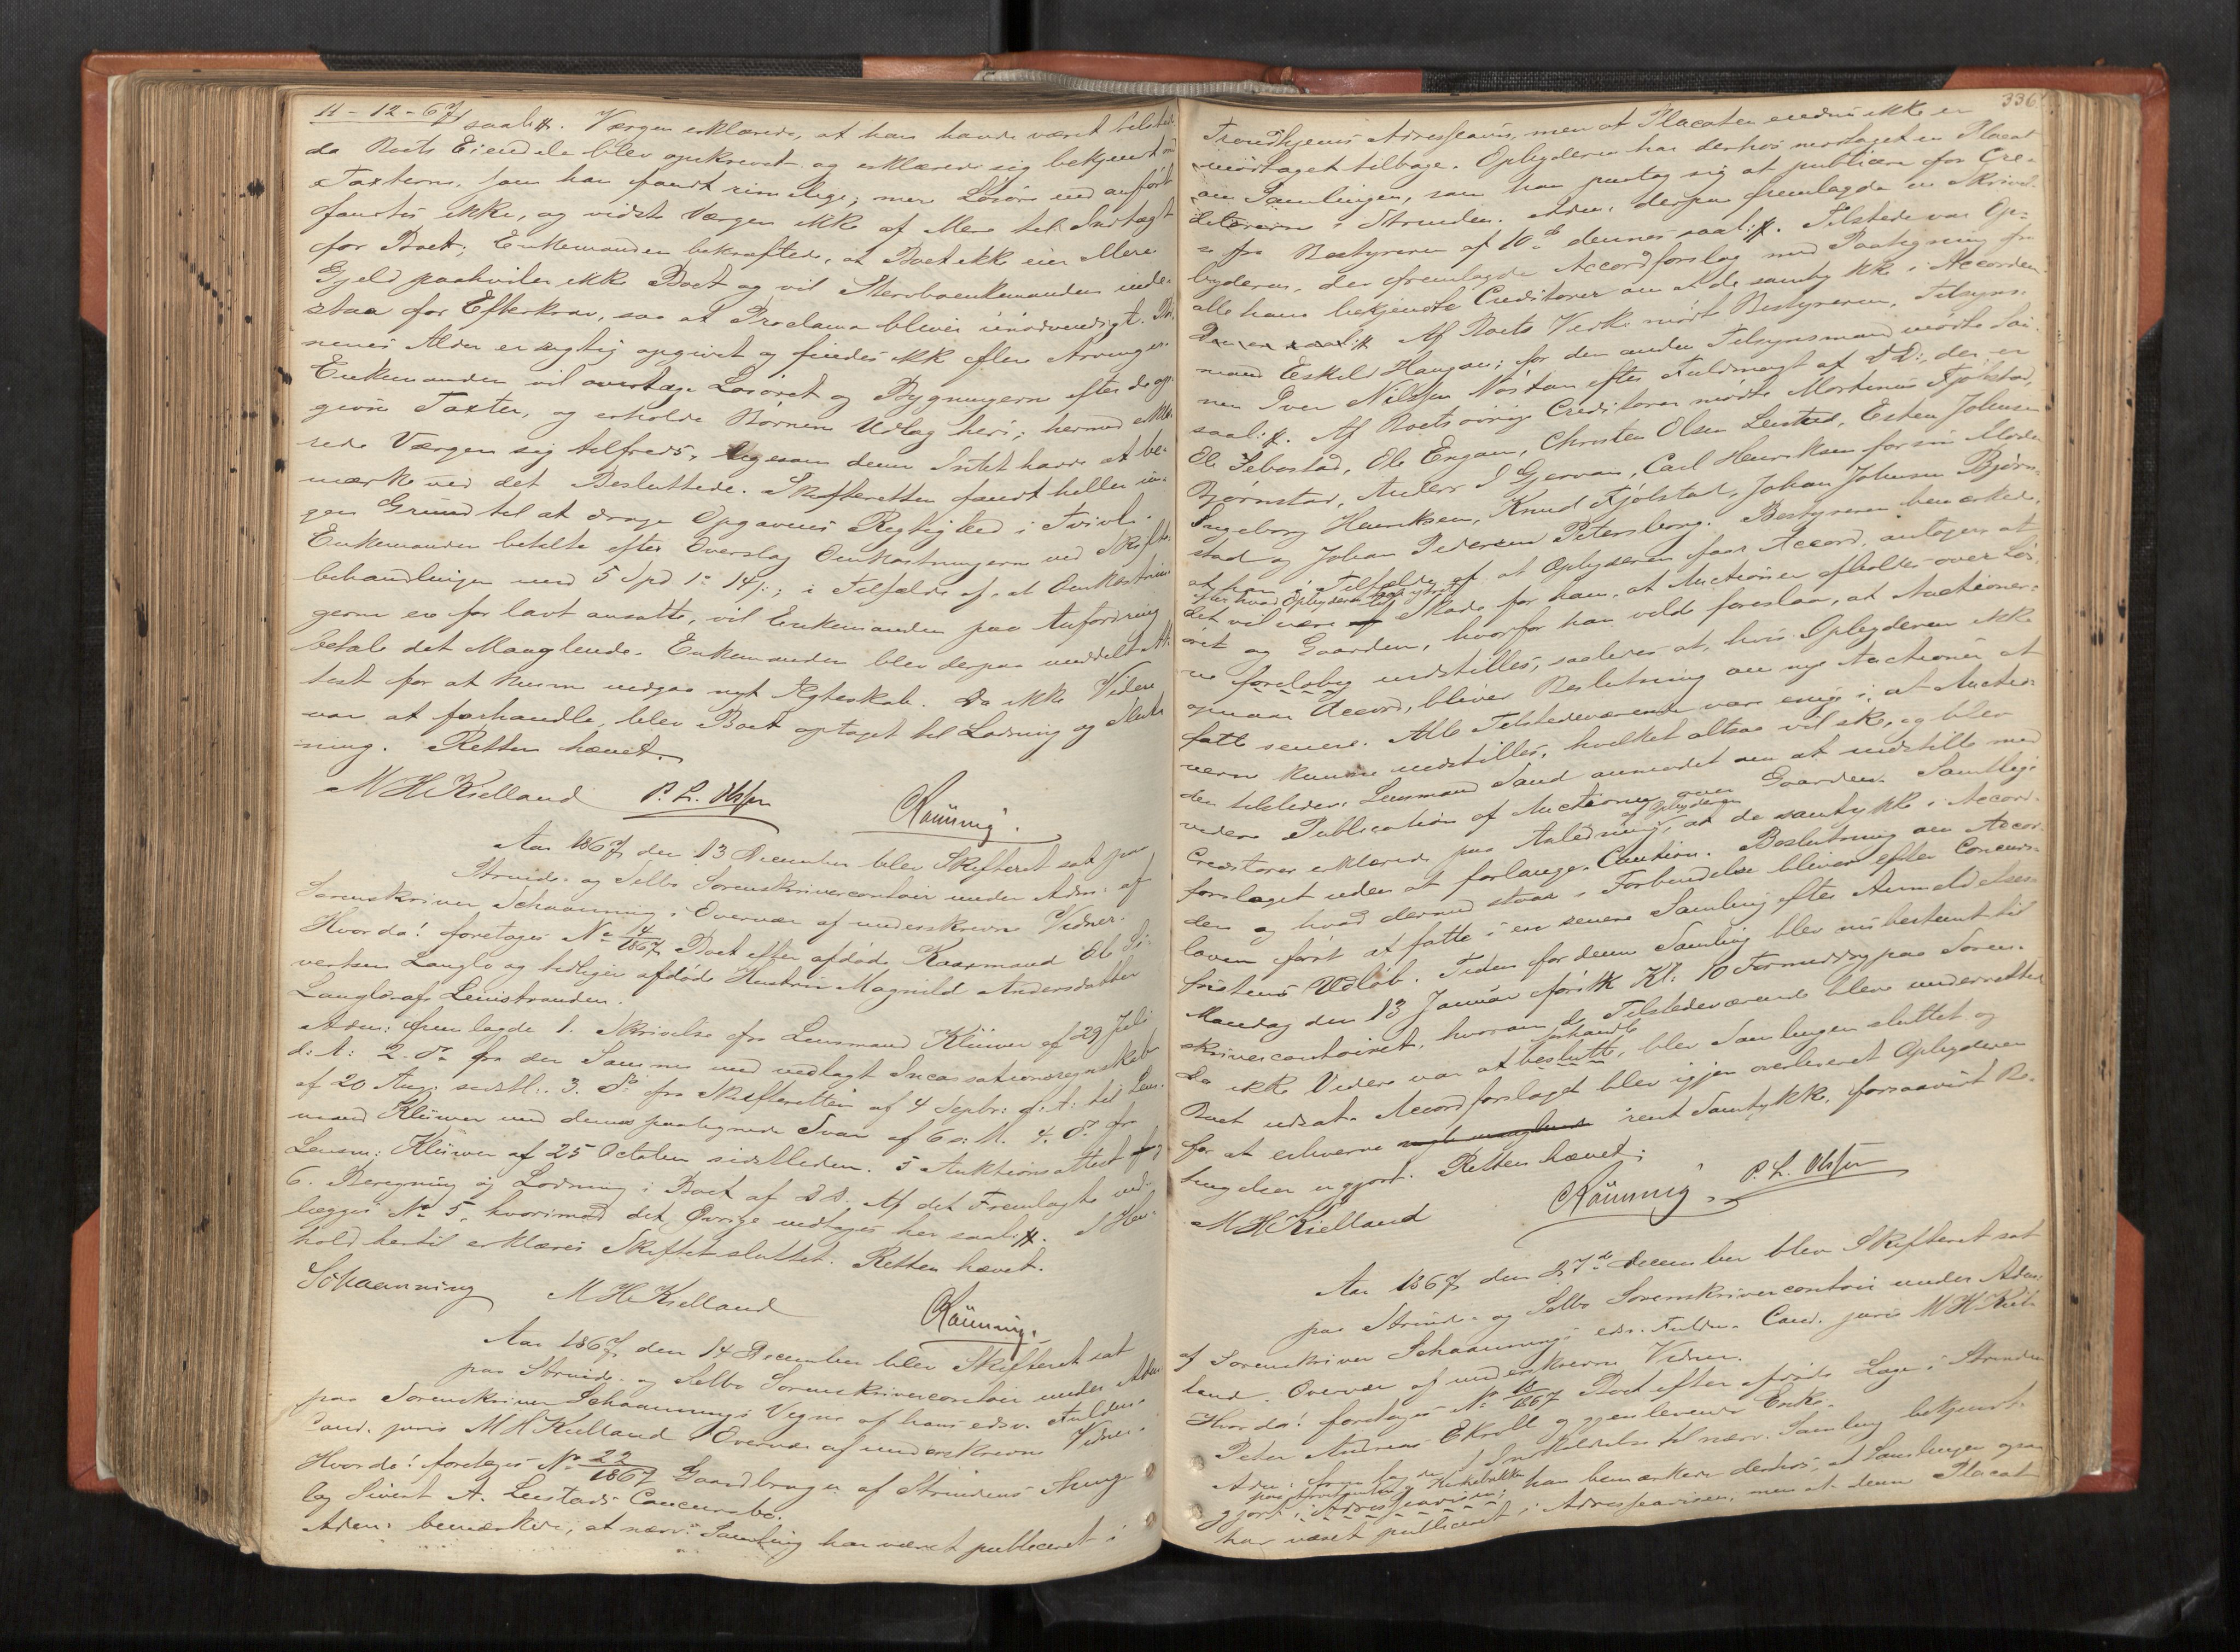 11-12-67 saal. #. Værgen erklærede, at han havde været tilstede
da Boets Eiendele blev opskrevet og erklærede sig bekjendt m
Taxterne, som han fandt rimelige; mere Løsøre end anført
fandtes ikke, og vidste Værgen ikke af Mere til Indtægt
for Boet; Enkemanden bekræftede, at Boet ikke eier Mere.
Gjeld paahviler ikke Boet og vil Stervboenkemanden inde-
staa for Efterkrav, saa at Proclama bliver unødvendigt. Bør-
nenes Alder er rigtig opgivet og findes ikke flere Arvinger.
Enkemanden vil overtage Løsøret og Bygningerne efter de op-
givne Taxter, og erholde Børnene Udlæg heri; hermed erklæ-
rede Værgen sig tilfreds, ligesom denne Intet havde at be-
mærke ved det Besluttede. Skifteretten fandt heller in-
gen Grund til at drage Opgavens Rigtighed i Tvivl.
Enkemanden betalte efter Overslag Omkostningerne ved Skifte-
behandlingen med 5 Spd 1 # 14 s; i Tilfælde af, at Omkostnin-
gerne er for lavt ansatte, vil Enkemanden paa Anfordring
betale det Manglende. Enkemanden blev derpaa meddelt At-
test for at kunne indgaa nyt Ægteskab. Da ikke Videre
var at forhandle, blev Boet optaget til Lodning og Slut-
ning. Retten hævet.
M H Kielland P. L. Olsen Rönning.
Aar 1867 den 13 December blev Skifteret sat paa
Strinde- og Selbo Sorenskrivercontoir under Adm: af
Sorenskriver Schaanning i Overvær af underskrevne Vidner.
Hvor da! foretoges No 4/1867 Boet efter afdøde Kaarmand Ole Si-
vertsen Langlo og tidligere afdøde Hustru Magnild Andersdatter
Langlo af Leinstranden.
Adm: fremlagde 1. Skrivelse fra Lensmand Klüwer af 29 Juli
d: A: 2. do fra den Samme med vedlagt Incassationsregnskab
af 20 Aug: sidstl:. 3. do fra Skifteretten af 4 Septbr: d: A: til Lens-
mand Klüwer med dennes paategnede Svar af 6 s: M. 4. do fra
Lensm: Klüwer af 25 October sidstleden. 5 Auktionsattest og
6. Beregning og Lodning i Boet af D.D. Af det Fremlagte ved-
lægges No 5, hvorimod det Øvrige indtages her saal: #. I Hen-
hold hertil erklæres Skiftet sluttet. Retten hævet.
Schaanning M H Kielland Rönning.
Aar 1867 den 14 December blev Skifteret sat
paa Strinde- og Selbo Sorenskrivercontoir under Adm:
paa Sorenskriver Schaannings Vegne af hans edsv. Fuldm.
Cand. juris M H Kielland i Overvær af underskrevne Vidner.
Hvor da! foretoges No 22/1867 Gaardbruger af Strindens Thing-
lag Sivert A. Leistads Concursbo.
Adm: bemærkede, at nærv: Samling har været publiceret i
336
Trondhjems Adresseavis, men at Placaten endnu ikke er
modtaget tilbage. Opbyderen har derhos modtaget en Placat
om Samlingen, som han paatog sig at publicere for Cre-
ditorerne i Strinden. Adm: derpaa fremlagde en Skrivel-
se fra Bestyreren af 10de dennes saal: #. Tilstede var Op-
byderen, der fremlagde Accordforslag med Paategning fra
alle hans bekjendte Creditorer om at de samtykke i Accorden
Den er saal: # Af Boets Vedk: mødte Bestyreren, Tilsyns-
mand Eskild Haugan; for den anden Tilsynsmand mødte Søn-
nen Iver Nilssen Nøstan efter Fuldmagt af D.D:, der er
saal: #. Af Boets øvrige Creditorer mødte Mortinus Fjølstad,
Ole Sebostad, Ole Engan, Christen Olsen Leistad, Esten Johnsen
Bjørnstad, Anders I Gjervan, Carl Henriksen for sin Moder
Ingeborg Henriksen, Knud Fjølstad, Johan Johnsen Bjørn-
stad og Johan Pedersen Petersborg. Bestyreren bemærkede,
at han i Tilfælde af at Opbyderen faar Accord, antager at
efter hvad Opbyderen har ytret
det vil være til Skade for ham, at Auctioner afholdes over Løs-
øret og Gaarden, hvorfor han vilde foreslaa, at Auctioner-
ne foreløbig indstilles, saaledes at, hvis Opbyderen ikke
opnaar Accord, bliver Beslutning om nye Auctioner at
fatte senere. Alle Tilstedeværende vare enige i, at Auctio-
nerne kunne indstilles, hvilket altsaa vil ske, og blev
den tilstedev: Lensmand Sand anmodet om at indstille med
videre Publication af Auctioner over Gaarden. Samtlige
Creditorer erklærede paa Anledning af Opbyderen, at de samtykke i Accord-
forslaget uden at forlange Caution. Beslutning om Accor-
den og hvad dermed staar i Forbindelse bliver efter Concurs-
loven først at fatte i en senere Samling efter Anmeldelses-
fristens Udløb. Tiden for denne Samling blev nu bestemt til
Mandag den 13 Januar førstk Kl: 10 Formiddag paa Soren-
skrivercontoiret, hvorom de Tilstedeværende bleve underrettet
Da ikke Videre var at beslutte forhandle, blev Samlingen sluttet og
Boet udsat. Accordforslaget blev igjen overleveret Opbyderen
for at erhverve rent Samtykke, forsaavidt Be-
tingelser er gjort. Retten hævet.
M H Kielland Rönning P. L. Olsen
Aar 1867 den 27de December blev Skifteret sat
paa Strinde- og Selbo Sorenskrivercontoir under Adm:
af Sorenskriver Schaannings edsv. Fuldm. Cand. juris M H Kiel-
land i Overvær af underskrevne Vidner.
Hvor da! foretoges No 18/1867 Boet efter afdøde Lage i Strinden
Peter Andreas Ekroll og gjenlevende Enke.
Adm: fremlagde 1 Indkaldelse til nærv. Samling bekjendt-
paa Strinden Kirkebakke
gjort i Adresseavisen; han bemærkede derhos, at Samlingen ogsaa
har været publiceret i Adresseavisen, men at denne Placat